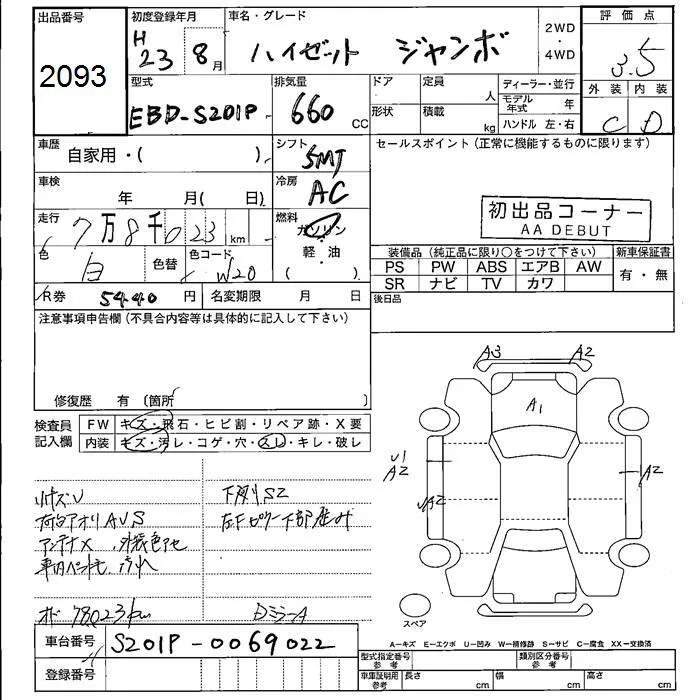 出品番号
2093
初度登録年月
H 23 8月
車名・グレード
ハイゼット ジャンボ
2WD
・
4WD
評価点
3.5
外装 内装
C D
型式
EBD-S201P
排気量
660 CC
ドア
定員
人
形状
積載
kg
ディーラー・並行
モデル年式 年
ハンドル 左・右
車歴
自家用・( )
シフト
5MT
セールスポイント(正常に機能するものに限ります)
車検
年 月( 日)
冷房
AC
初出品コーナー
AA DEBUT
走行
7万8千023km
燃料
ガソリン
軽・油
( )
色
白
色替
色コード
W20
装備品(純正品に限り○をつけて下さい)
PS PW ABS エアB AW
SR ナビ TV カワ
新車保証書
有・無
R券 5440円
名変期限 月 日
後日品
注意事項申告欄(不具合内容等は具体的に記入して下さい)
修復歴 有 〔箇所 〕
検査員
記入欄
FW キズ・飛石・ヒビ割・リペア跡・X要
内装 キズ・汚レ・コゲ・穴・スレ・キレ・破レ
A3 A2
A1
U1
A2
A2
小キズU
下廻りS2
荷台アオリAUS
左Fピラー下部凹み
アンテナX 外装色アセ
車内ペットモ、汚れ
オド 78023km
Dミラー A
スペア
A-キズ E-エクボ U-凹み W-補修跡 S-サビ C-腐食 XX-交換済
車台番号
S201P-0069022
登録番号
型式指定番号
参考
類別区分番号
参考
車庫証明用
参考
長さ cm
幅 cm
高さ cm